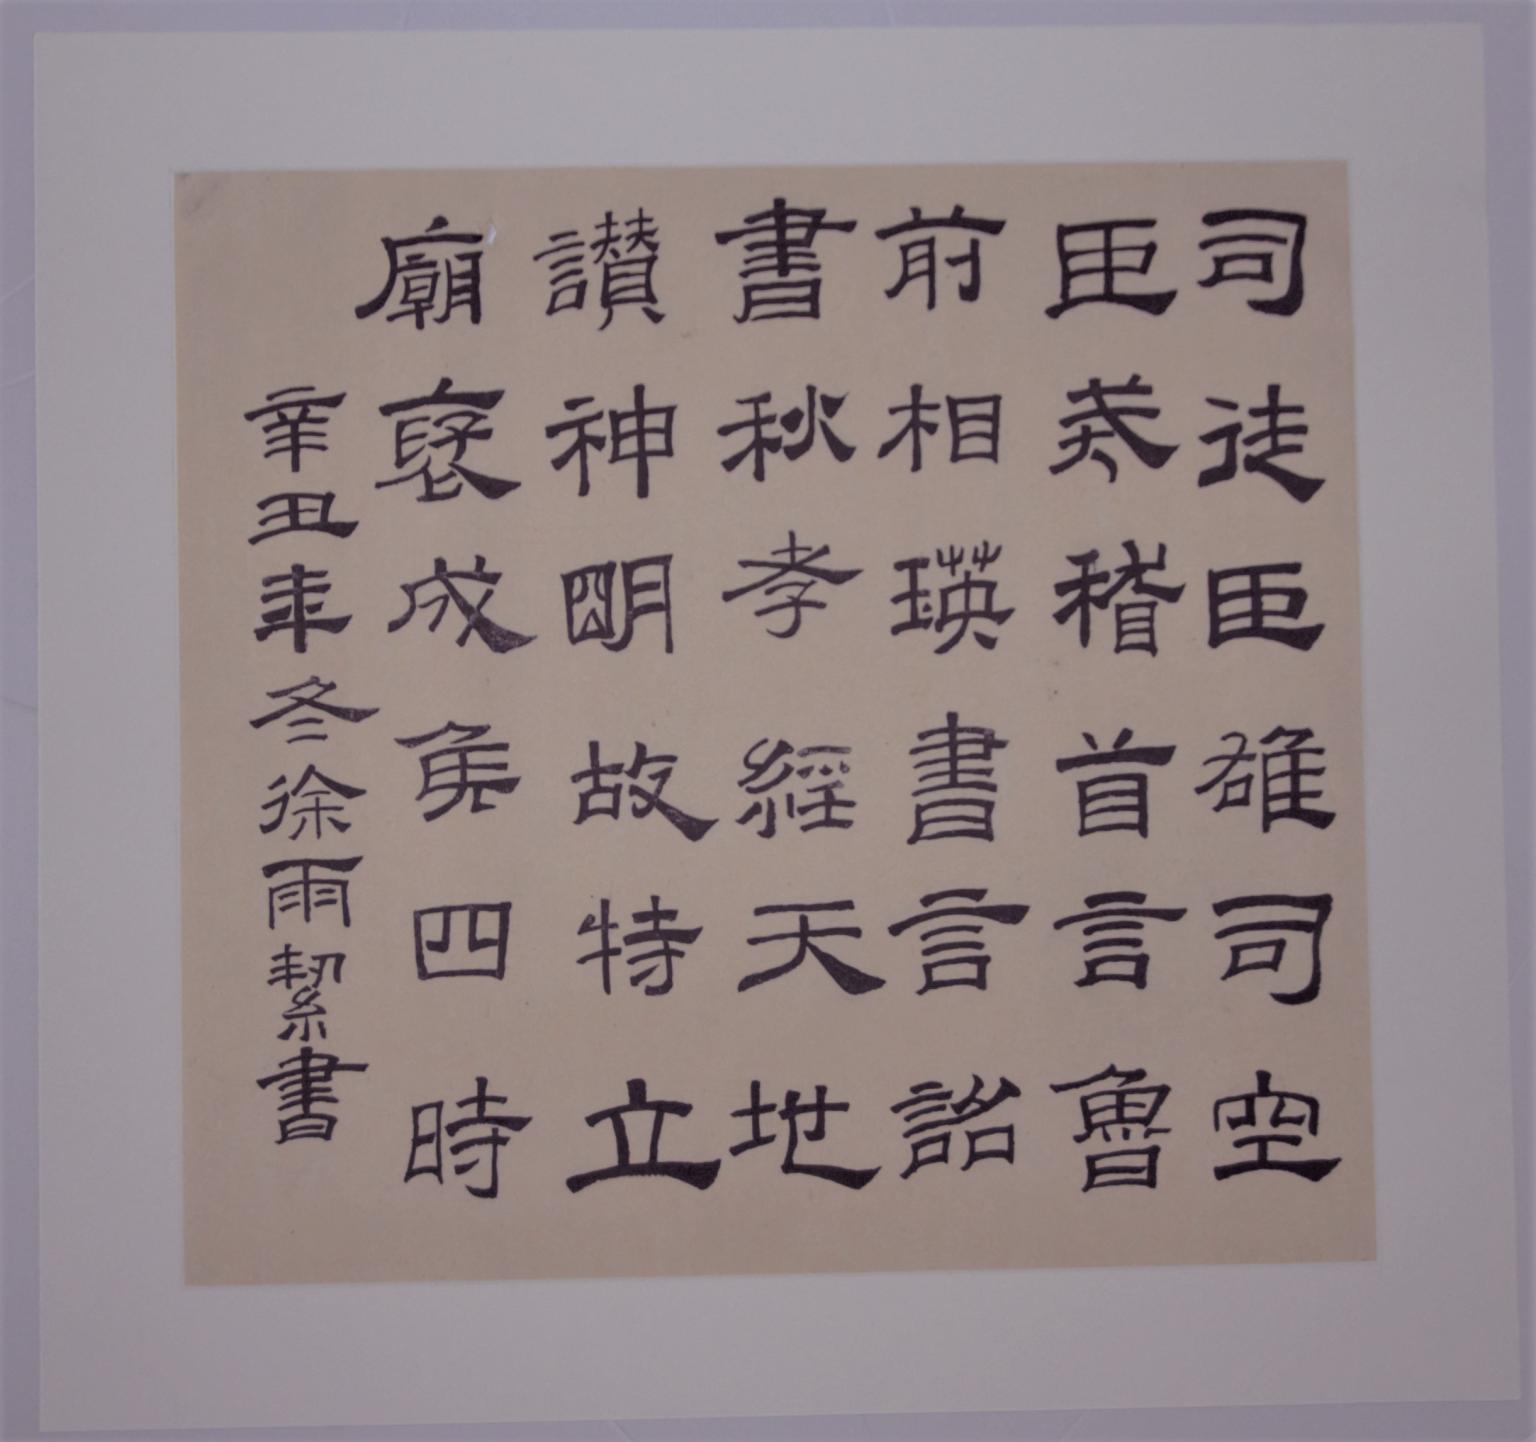 司徒臣雄司空
臣戒稽首言魯
前相瑛書言詔
書秋孝經天地
讚神明故特立
廟褒成侯四時
辛丑年冬徐雨絜書